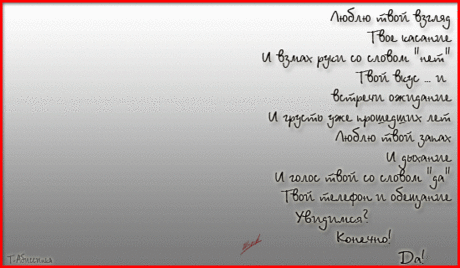 Люблю твой взгляд
Твое касание
И взмах руки со словом "нет"
Твой вкус ... и
встречи ожидание
И грусть уже прошедших лет
Люблю твой запах
И дыхание
И голос твой со словом "да"
Твой телефон и обещание
Увидимся?
Конечно!
Да!